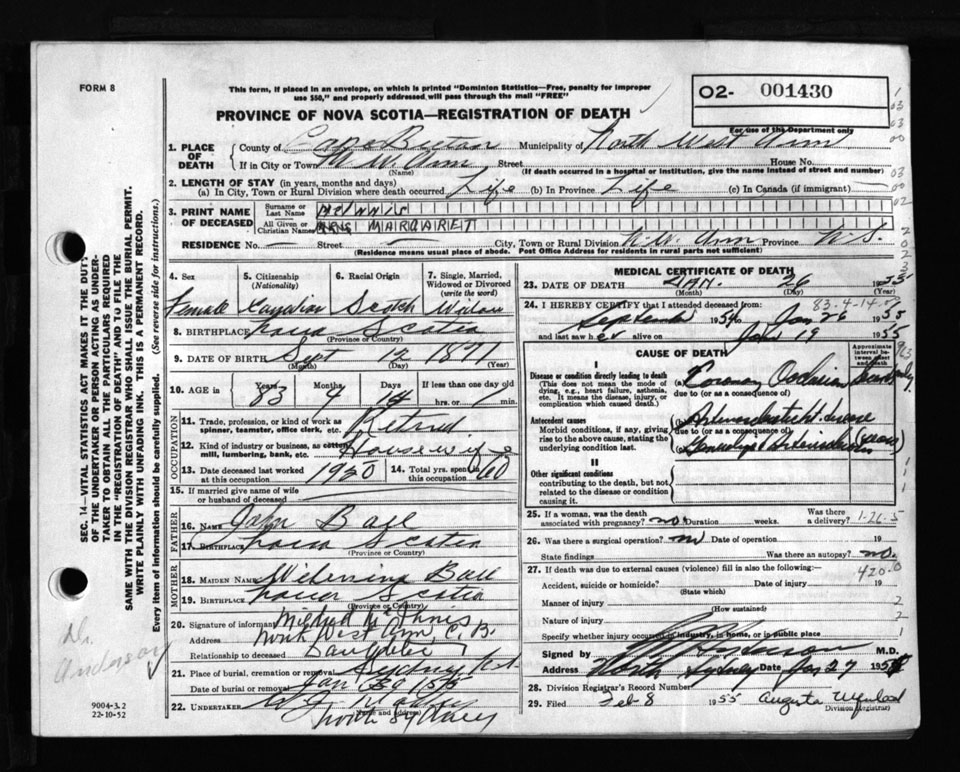 FORM 8
This form, if placed in an envelope, on which is printed "Dominion Statistics—Free, penalty for improper
use $50," and properly addressed will pass through the mail "FREE"
PROVINCE OF NOVA SCOTIA—REGISTRATION OF DEATH
O2- 001430
For use of the Department only
1. PLACE OF DEATH
County of Cape Breton Municipality of North West Arm
If in City or Town N. W. Arm Street House No.
(Name) (If death occurred in a hospital or institution, give the name instead of street and number)
2. LENGTH OF STAY (in years, months and days)
(a) In City, Town or Rural Division where death occurred Life (b) In Province Life (c) In Canada (if immigrant)
3. PRINT NAME OF DECEASED
Surname or Last Name McINNIS
All Given or Christian Names MRS MARGARET
RESIDENCE No. — Street — City, Town or Rural Division N.W. Arm Province N.S.
(Residence means usual place of abode. Post Office Address for residents in rural parts not sufficient)
4. Sex Female
5. Citizenship (Nationality) Canadian
6. Racial Origin Scotch
7. Single, Married, Widowed or Divorced (write the word) Widow
8. BIRTHPLACE Nova Scotia
(Province or Country)
9. DATE OF BIRTH Sept 12 1871
(Month) (Day) (Year)
10. AGE in Years 83 Months 4 Days 14 If less than one day old hrs. or min.
OCCUPATION
11. Trade, profession, or kind of work as spinner, teamster, office clerk, etc. Retired
12. Kind of industry or business, as cotton mill, lumbering, bank, etc. Housewife
13. Date deceased last worked at this occupation 1950
14. Total yrs. spent in this occupation 60
15. If married give name of wife or husband of deceased
FATHER
16. NAME John Ball
17. BIRTHPLACE Nova Scotia
(Province or Country)
MOTHER
18. MAIDEN NAME Ball
19. BIRTHPLACE Nova Scotia
(Province or Country)
20. Signature of informant Mildred McInnis
Address North West Arm, C. B.
Relationship to deceased Daughter
21. Place of burial, cremation or removal Sydney
Date of burial or removal Jan 1955
22. UNDERTAKER
(Name and Address)
North Sydney
MEDICAL CERTIFICATE OF DEATH
23. DATE OF DEATH JAN. 26 1955
(Month) (Day)
83-4-14
24. I HEREBY CERTIFY that I attended deceased from:
September 1954 to Jan 26 1955
and last saw her alive on Jan 19 1955
CAUSE OF DEATH
Approximate interval between onset and death
I
Disease or condition directly leading to death
(This does not mean the mode of dying, e.g., heart failure, asthenia, etc. It means the disease, injury, or complication which caused death.)
(a) Coronary Occlusion
due to (or as a consequence of)
Antecedent causes
Morbid conditions, if any, giving rise to the above cause, stating the underlying condition last.
(b)
due to (or as a consequence of)
II
Other significant conditions
contributing to the death, but not related to the disease or condition causing it.
25. If a woman, was the death associated with pregnancy? no Duration weeks. Was there a delivery?
1-26-5
26. Was there a surgical operation? no Date of operation 19
State findings Was there an autopsy? no.
27. If death was due to external causes (violence) fill in also the following:—
420.0
Accident, suicide or homicide? Date of injury 19
(State which)
Manner of injury
(How sustained)
Nature of injury
Specify whether injury occurred in industry, in home, or in public place
Signed by M.D.
Address North Sydney Date Jan 27 195
28. Division Registrar's Record Number
29. Filed Feb-8 1955 Augusta
(Division Registrar)
SEC. 14—VITAL STATISTICS ACT MAKES IT THE DUTY
OF THE UNDERTAKER OR PERSON ACTING AS UNDER-
TAKER TO OBTAIN ALL THE PARTICULARS REQUIRED
IN THE "REGISTRATION OF DEATH" AND TO FILE THE
SAME WITH THE DIVISION REGISTRAR WHO SHALL ISSUE THE BURIAL PERMIT.
WRITE PLAINLY WITH UNFADING INK. THIS IS A PERMANENT RECORD.
Every item of information should be carefully supplied. (See reverse side for instructions.)
Dr.
Anderson
9004-3.2
22-10-52